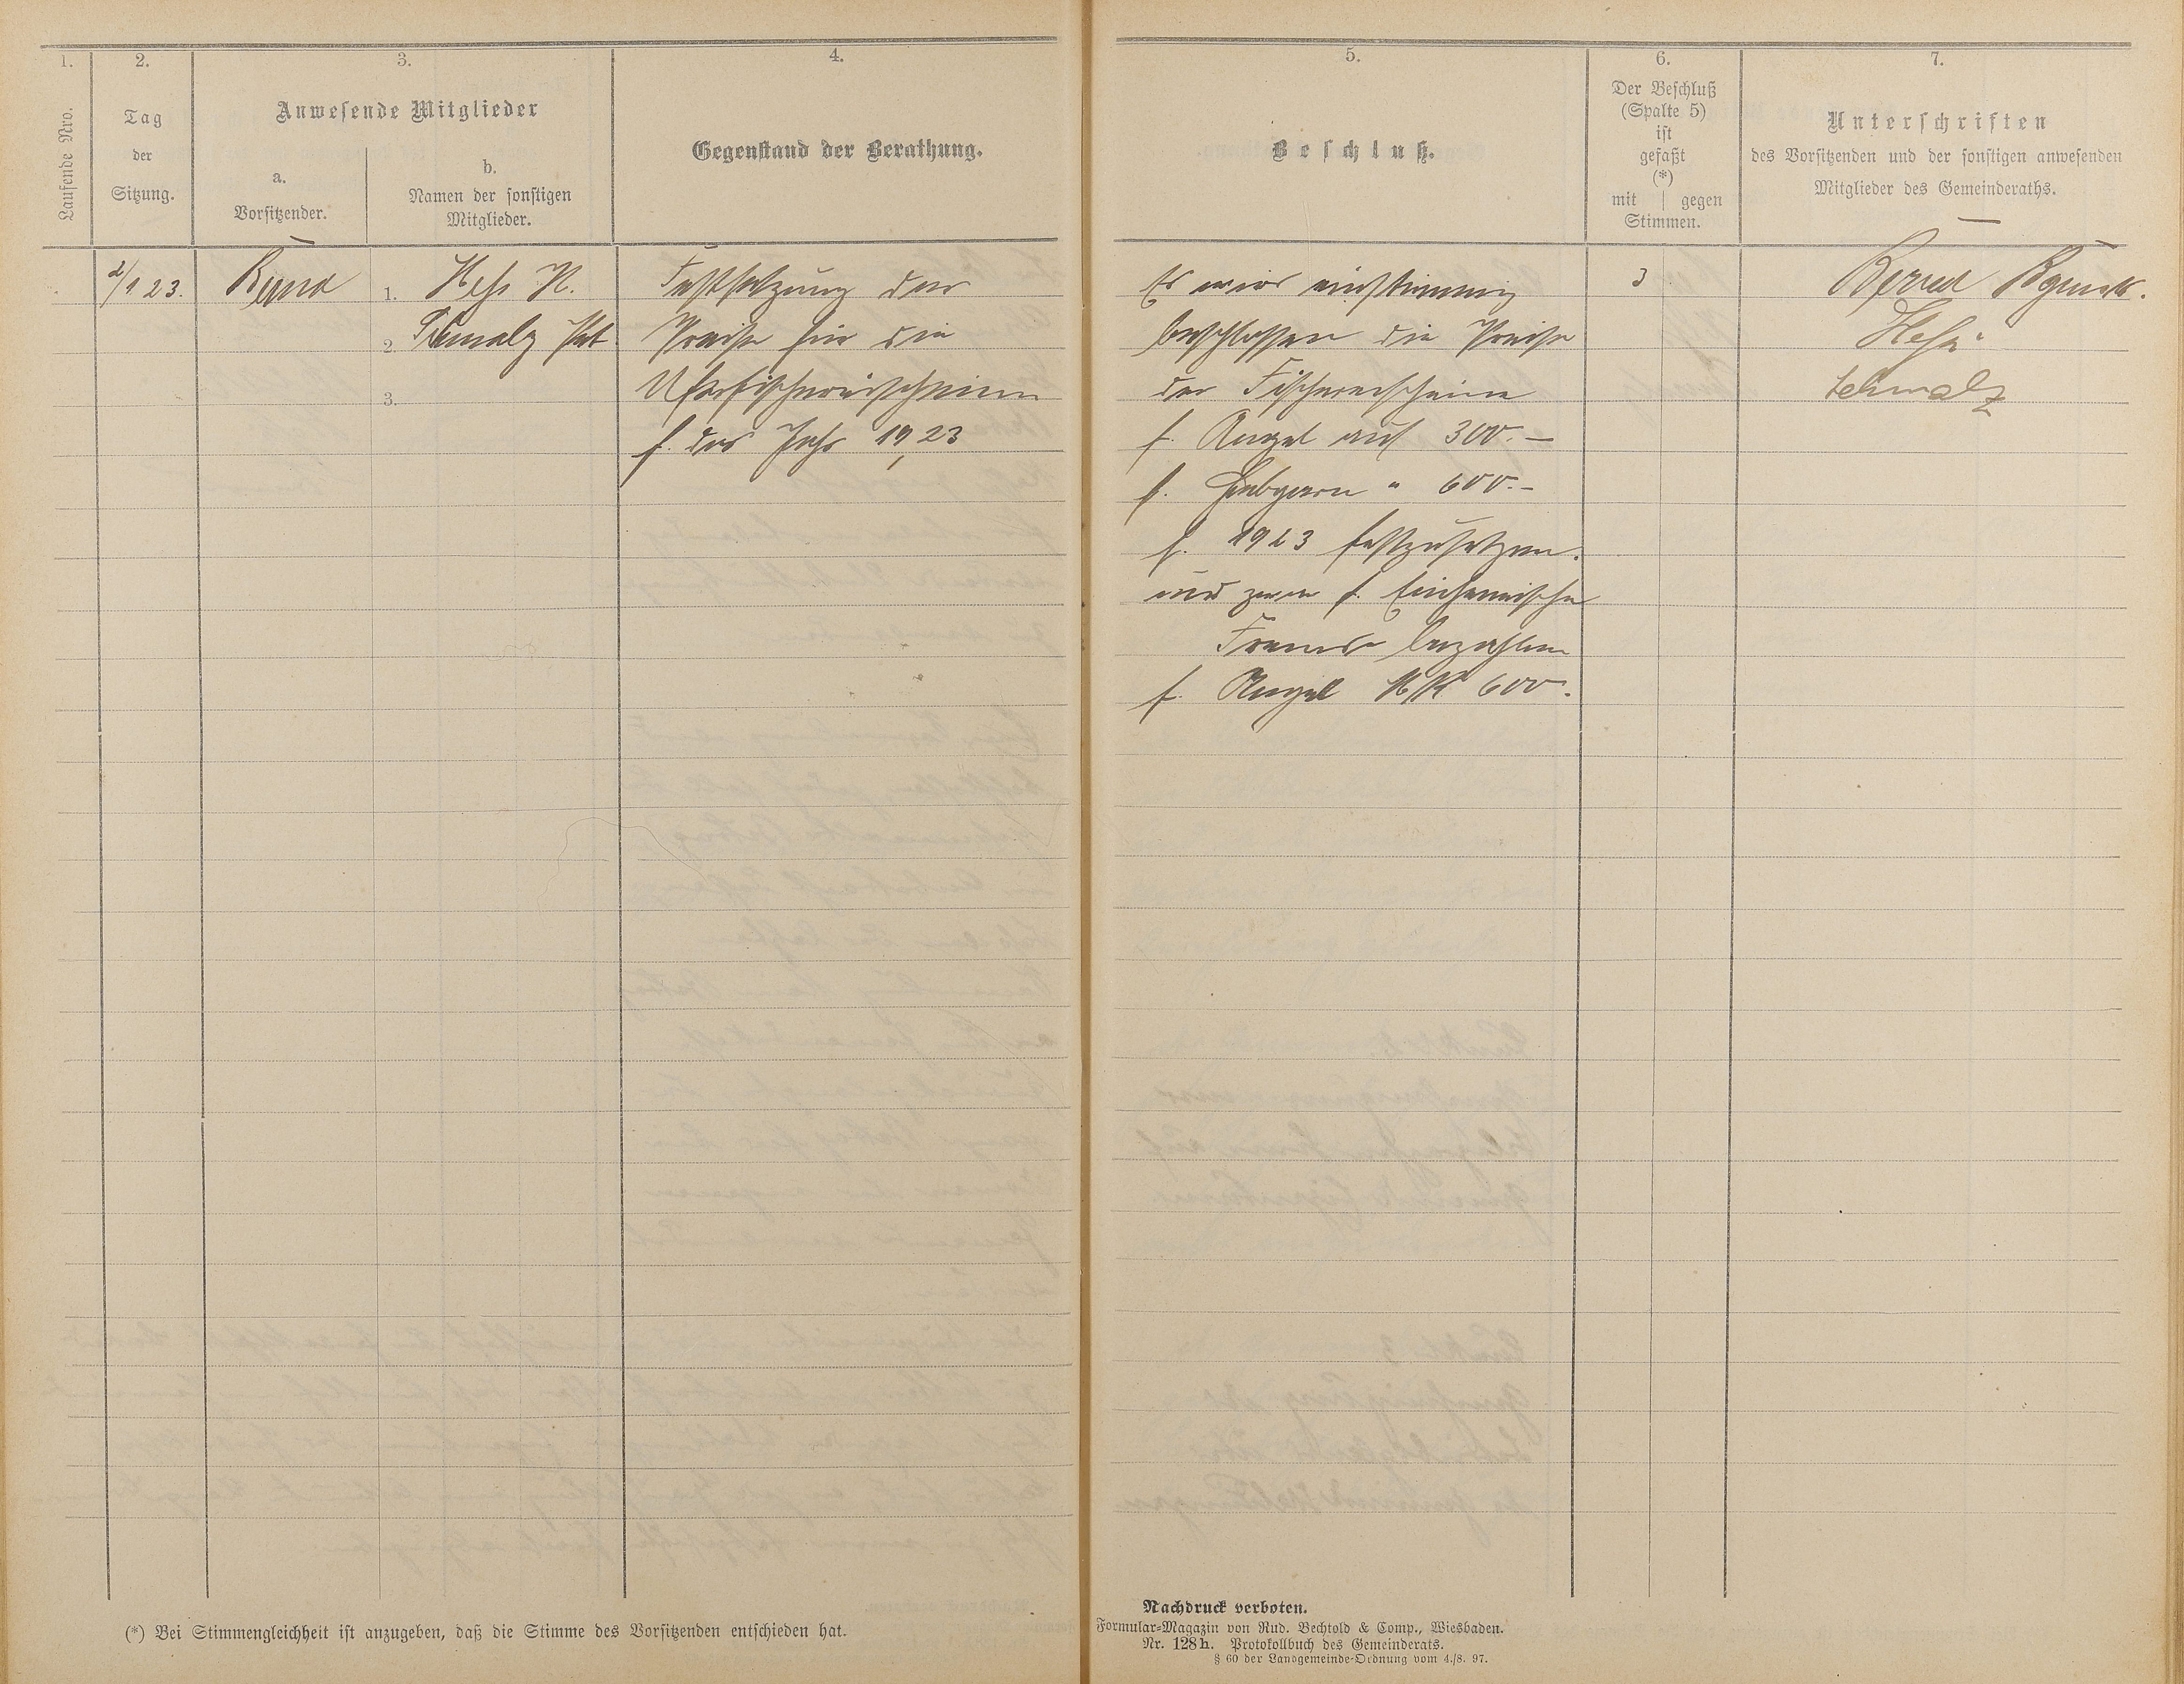 1.
Laufende Nro.
2.
Tag
der
Sitzung.
3.
Anwesende Mitglieder
a.
Vorsitzender.
b.
Namen der sonstigen
Mitglieder.
4.
Gegenstand der Berathung.
2/1 23.
Bernd
1. Hess H.
2. Schmalz Pet
3.
Festsetzung der
Preise für die
Uferfischereischeine
f. das Jahr 1923
(*) Bei Stimmengleichheit ist anzugeben, daß die Stimme des Vorsitzenden entschieden hat.
5.
Beschluß.
6.
Der Beschluß
(Spalte 5)
ist
gefaßt
(*)
mit | gegen
Stimmen.
7.
Unterschriften
des Vorsitzenden und der sonstigen anwesenden
Mitglieder des Gemeinderaths.
Es wird einstimmig
beschlossen die Preise
der Fischereischeine
f. Angel auf 300.-
f. Hebgarn " 600.-
f. 1923 festzusetzen.
und zwar f. Einheimische
Fremde bezahlen
f. Angel MK 600.
3
Bernd Bgmstr.
Hess
Schmalz
Nachdruck verboten.
Formular-Magazin von Rud. Bechtold & Comp., Wiesbaden.
Nr. 128h. Protokollbuch des Gemeinderats.
§ 60 der Landgemeinde-Ordnung vom 4./8. 97.